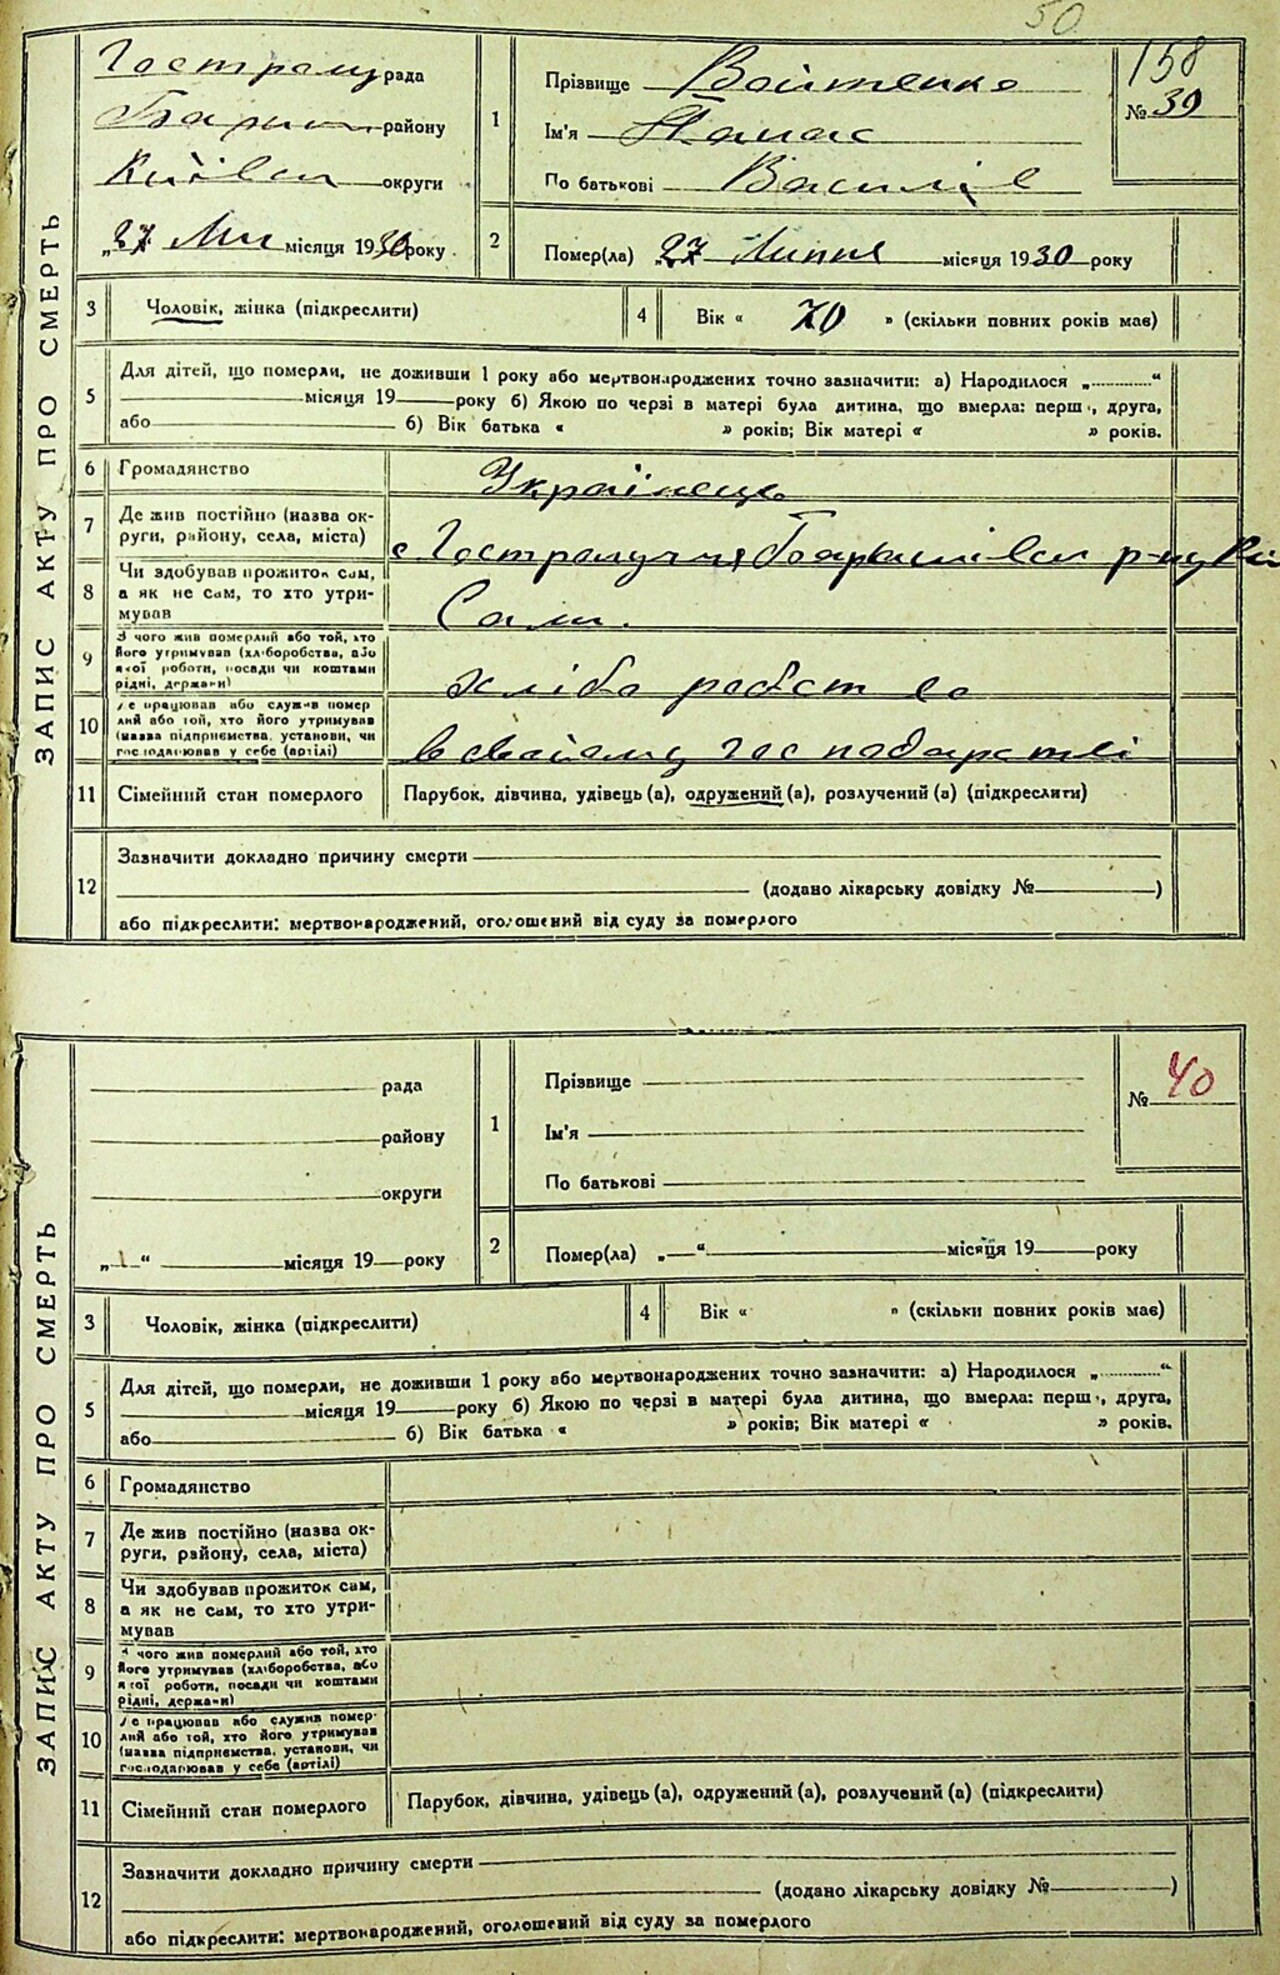 50
ЗАПИС АКТУ ПРО СМЕРТЬ
рада
району
Київськ округи
„27" місяця 1930 року
1
Прізвище Войтенко
Ім'я Панас
По батькові Василів
158
№ 39
2
Помер(ла) „27" Липня місяця 1930 року
3
Чоловік, жінка (підкреслити)
4
Вік « 70 » (скільки повних років має)
5
Для дітей, що померли, не доживши 1 року або мертвонароджених точно зазначити: а) Народилося „ “
місяця 19 року б) Якою по черзі в матері була дитина, що вмерла: перша, друга,
або б) Вік батька « » років; Вік матері « » років.
6
Громадянство
Українець
7
Де жив постійно (назва ок-
руги, району, села, міста)
с
8
Чи здобував прожиток сам,
а як не сам, то хто утри-
мував
Сам.
9
З чого жив померлий або той, хто
його утримував (хліборобства, або
якої роботи, посади чи коштами
рідні, держави)
хліборобство
10
Де працював або служив помер
лий або той, хто його утримував
(назва підприємства, установи, чи
господарював у себе (артілі)
в свойому господарстві
11
Сімейний стан померлого
Парубок, дівчина, удівець (а), одружений (а), розлучений (а) (підкреслити)
12
Зазначити докладно причину смерти
(додано лікарську довідку № )
або підкреслити: мертвонароджений, оголошений від суду за померлого
ЗАПИС АКТУ ПРО СМЕРТЬ
рада
району
округи
„ “ місяця 19 року
1
Прізвище
Ім'я
По батькові
№ 40
2
Помер(ла) „ “ місяця 19 року
3
Чоловік, жінка (підкреслити)
4
Вік « » (скільки повних років має)
5
Для дітей, що померли, не доживши 1 року або мертвонароджених точно зазначити: а) Народилося „ “
місяця 19 року б) Якою по черзі в матері була дитина, що вмерла: перша, друга,
або б) Вік батька « » років; Вік матері « » років.
6
Громадянство
7
Де жив постійно (назва ок-
руги, району, села, міста)
8
Чи здобував прожиток сам,
а як не сам, то хто утри-
мував
9
З чого жив померлий або той, хто
його утримував (хліборобства, або
якої роботи, посади чи коштами
рідні, держави)
10
Де працював або служив помер-
лий або той, хто його утримував
(назва підприємства, установи, чи
господарював у себе (артілі)
11
Сімейний стан померлого
Парубок, дівчина, удівець (а), одружений (а), розлучений (а) (підкреслити)
12
Зазначити докладно причину смерти
(додано лікарську довідку № )
або підкреслити: мертвонароджений, оголошений від суду за померлого